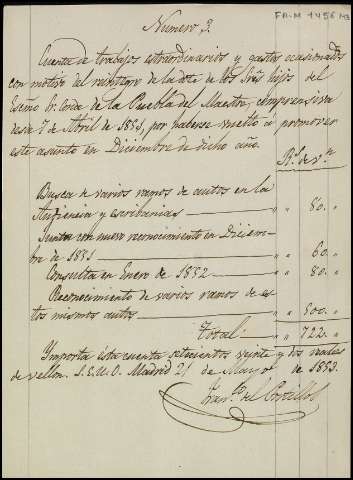 FA-M 4456
Numero 3.
Cuenta de trabajos estraordinarios y gastos ocasionados
con motivo del reintegro de la dote de los Sres hijos del
Escmo Sr. Conde de la Puebla del Maestre, comprensiva
desde 7 de Abril de 1851, por haberse vuelto á promover
este asunto en Diciembre de dicho año.
Rs. de vn.
Busca de varios ramos de autos en la
Audiencia y escribanias " " 80. "
Junta con nuevo reconocimiento en Diciem-
bre de 1851 " " 60. "
Consulta en Enero de 1852 " " 80. "
Reconocimiento de varios ramos de es-
tos mismos autos " " 500. "
Total " " 722. "
Importa esta cuenta setecientos veinte y dos reales
de vellon. S.E.U.O. Madrid 21 de Mayo de 1853.
del Portillo